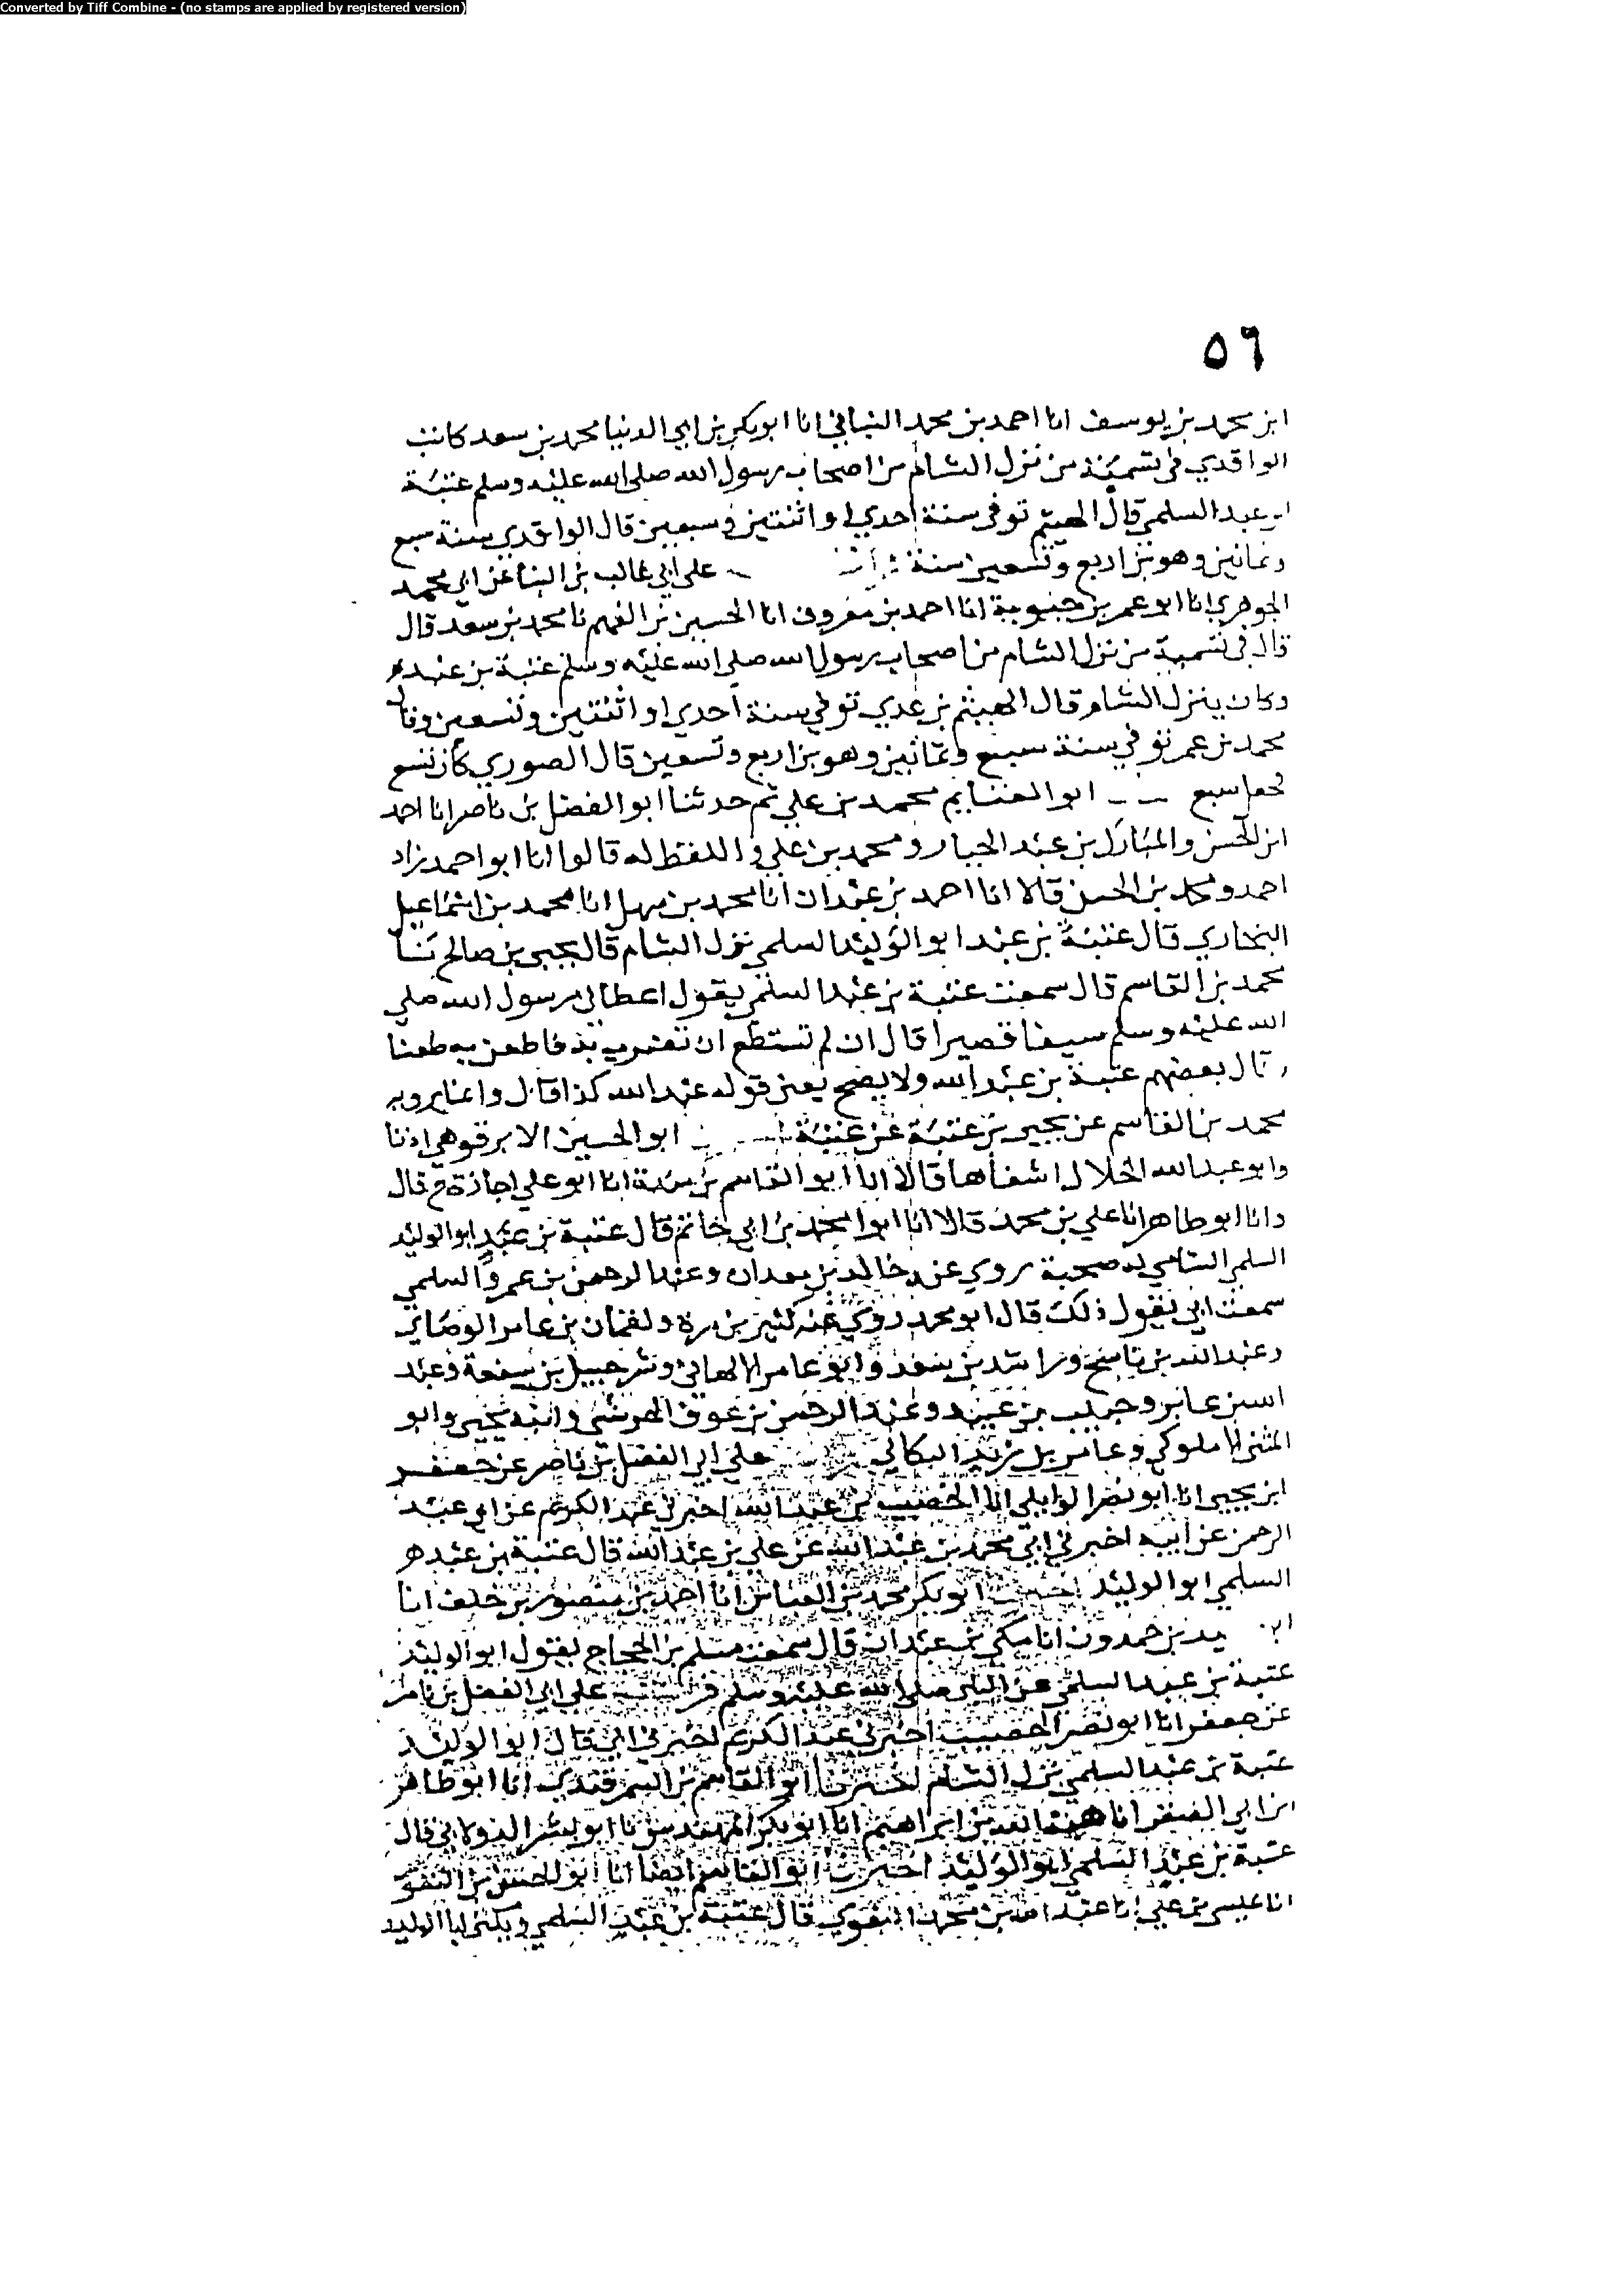 Converted by Tiff Combine - (no stamps are applied by registered version)
٥٦
ابن محمد بن يوسف انا احمد بن محمد اللنباني انا ابو بكر بن ابي الدنيا محمد بن سعد كاتب
الواقدي في تسمية من نزل الشام من اصحاب رسول الله صلى الله عليه وسلم عتبة
بن عبد السلمي قال الهيثم توفي سنة احدي او اثنتين وسبعين قال الواقدي سنة سبع
وثمانين وهو بن اربع وتسعين سنة على ابي غالب بن البنا عن ابي محمد
الجوهري انا ابو عمر بن حيوية انا احمد بن معروف انا الحسين بن الفهم نا محمد بن سعد قال
قال في تسمية من نزل الشام من اصحاب رسول الله صلى الله عليه وسلم عتبة بن عبد
وكان ينزل الشام قال الهيثم بن عدي توفي سنة احدي او اثنتين وتسعين وقال
محمد بن عمر توفي سنة سبع وثمانين وهو بن اربع وتسعين قال الصوري كان تسع
فجعل سبع ابو الغنايم محمد بن علي ثم حدثنا ابو الفضل بن ناصر انا احمد
ابن الحسن والمبارك بن عبد الجبار ومحمد بن علي واللفظ له قالوا انا ابو احمد زاد
احمد ومحمد بن الحسن قالا انا احمد بن عبدان انا محمد بن سهل انا محمد بن اسماعيل
البخاري قال عتبة بن عبد ابو الوليد السلمي نزل الشام قال يحيى بن صالح نا
محمد بن القاسم قال سمعت عتبة بن عبد السلمي يقول اعطاني رسول الله صلي
الله عليه وسلم سيفا قصيرا قال ان لم تستطع ان تضرب به فاطعن به طعنا
وقال بعضهم عتبة بن عبد الله ولا يصح يعني قوله عبد الله كذا قال وانما يرويه
محمد بن القاسم عن يحيى بن عتبة عن عتبة ابو الحسين الابرقوهي اذنا
وابو عبد الله الخلال شفاها قالا انا ابو القاسم بن مندة انا ابو علي اجازة ح قال
وانا ابو طاهر انا علي بن محمد قالا انا ابو محمد بن ابي حاتم قال عتبة بن عبد ابو الوليد
السلمي الشامي له صحبة روي عنه خالد بن معدان وعبد الرحمن بن عمرو السلمي
سمعت ابي يقول ذلك قال ابو محمد روي عنه كثير بن مرة ولقمان بن عامر الوصابي
وعبد الله بن ناسح وراشد بن سعد وابو عامر الالهاني وشرحبيل بن شفعة وعبد
الله بن عابر وحبيب بن عبيد وعبد الرحمن بن عوف الجرشي وابنه يحيى وابو
المثنى الاملوكي وعامر بن زيد البكالي على ابي الفضل بن ناصر عن جعفر
ابن يحيى انا ابو نصر الوايلي انا الخصيب بن عبد الله اخبرني عبد الكريم عن ابي عبد
الرحمن عن ابيه اخبرني ابي محمد بن عبد الله عن علي بن عبد الله قال عتبة بن عبد هو
السلمي ابو الوليد ابو بكر محمد بن العباس انا احمد بن منصور بن خلف انا
بن حمدون انا مكي بن عبدان قال سمعت مسلم بن الحجاج يقول ابو الوليد
عتبة بن عبد السلمي عن النبي صلى الله عليه وسلم قرات على ابي الفضل بن ناصر
عن جعفر انا ابو نصر الخصيب اخبرني عبد الكريم اخبرني ابي قال ابو الوليد
عتبة بن عبد السلمي نزل الشام اخبرنا ابو القاسم بن السمرقندي انا ابو طاهر
بن ابي الصقر انا هبة الله بن ابراهيم انا ابو بكر المهندس نا ابو بشر الدولابي قال
عتبة بن عبد السلمي ابو الوليد اخبرنا ابو القاسم ايضا انا ابو الحسين بن النقور
انا عيسى بن علي انا عبد الله بن محمد البغوي قال عتبة بن عبد السلمي ويكنى ابا الوليد